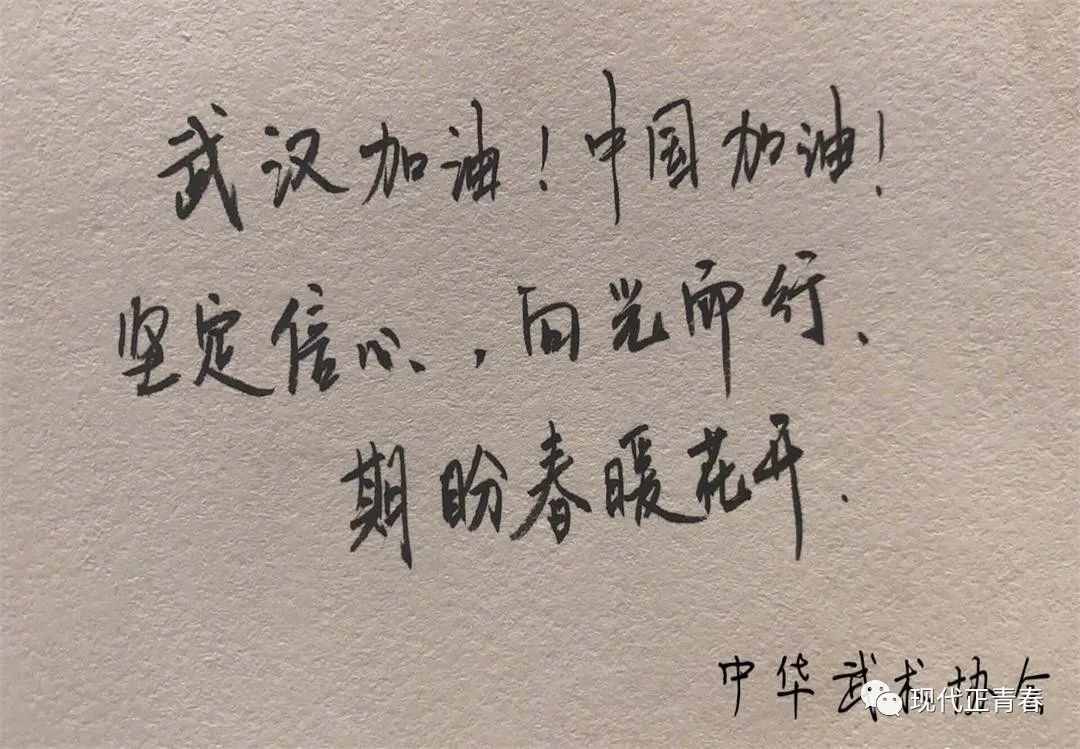 武汉加油！中国加油！
坚定信心，向光而行、
期盼春暖花开.
中华武术协会
现代正青春